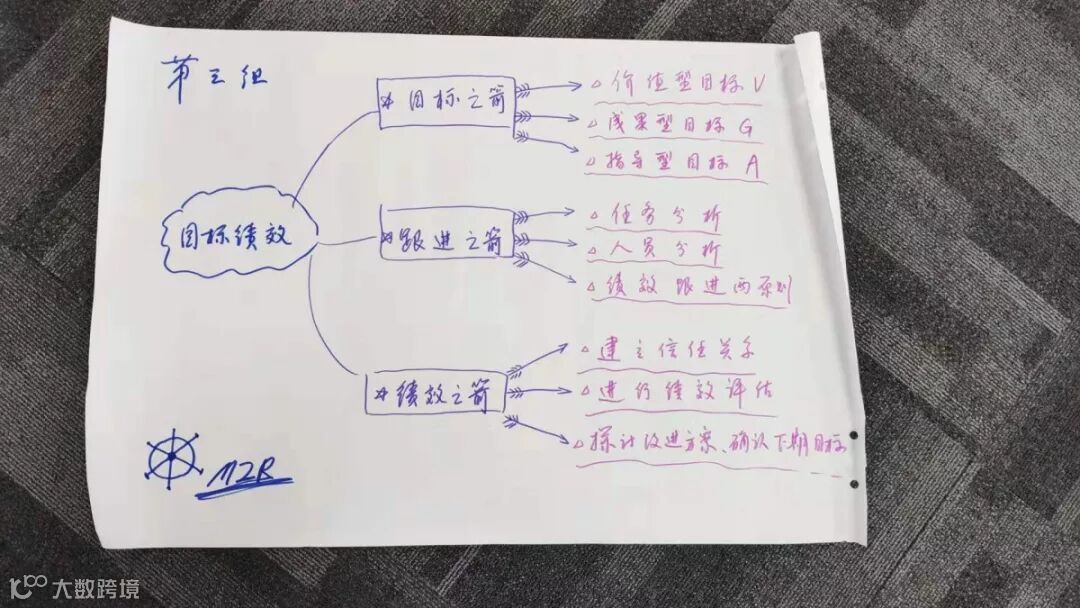 第三组
☆ 目标之箭
△ 价值型目标 V
△ 成果型目标 G
△ 指导型目标 A
目标绩效
☆ 跟进之箭
△ 任务分析
△ 人员分析
△ 绩效跟进两原则
☆ 绩效之箭
△ 建立信任关系
△ 进行绩效评估
△ 探讨改进方案、确认下期目标
MZR
大数跨境